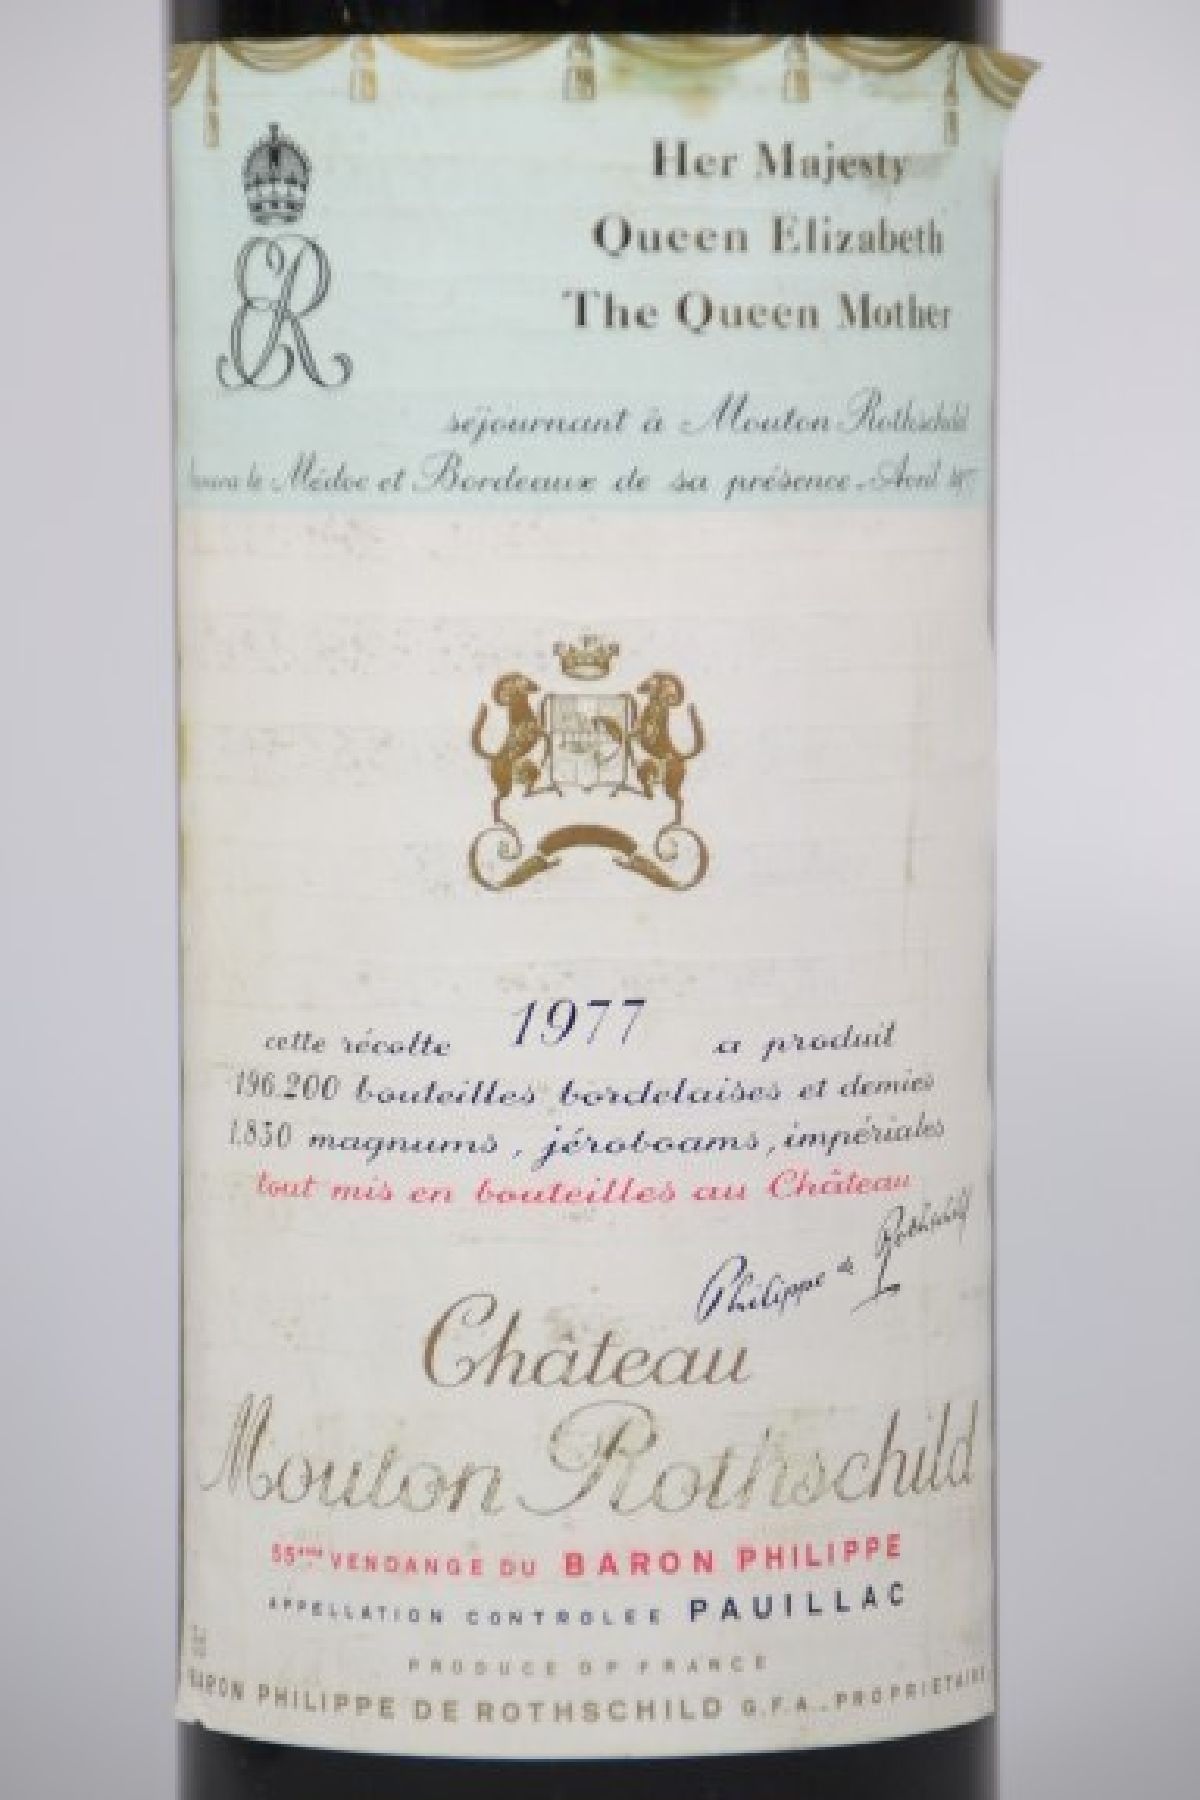 ER
Her Majesty
Queen Elizabeth
The Queen Mother
séjournant à Mouton Rothschild
le Médoc et Bordeaux de sa présence. Avril 1977
cette récolte 1977 a produit
196.200 bouteilles bordelaises et demies
1.850 magnums, jéroboams, impériales
tout mis en bouteilles au Château
Philippe de Rothschild
Château
Mouton Rothschild
55ème VENDANGE DU BARON PHILIPPE
APPELLATION CONTROLÉE PAUILLAC
PRODUCE OF FRANCE
BARON PHILIPPE DE ROTHSCHILD G.F.A. PROPRIETAIRE